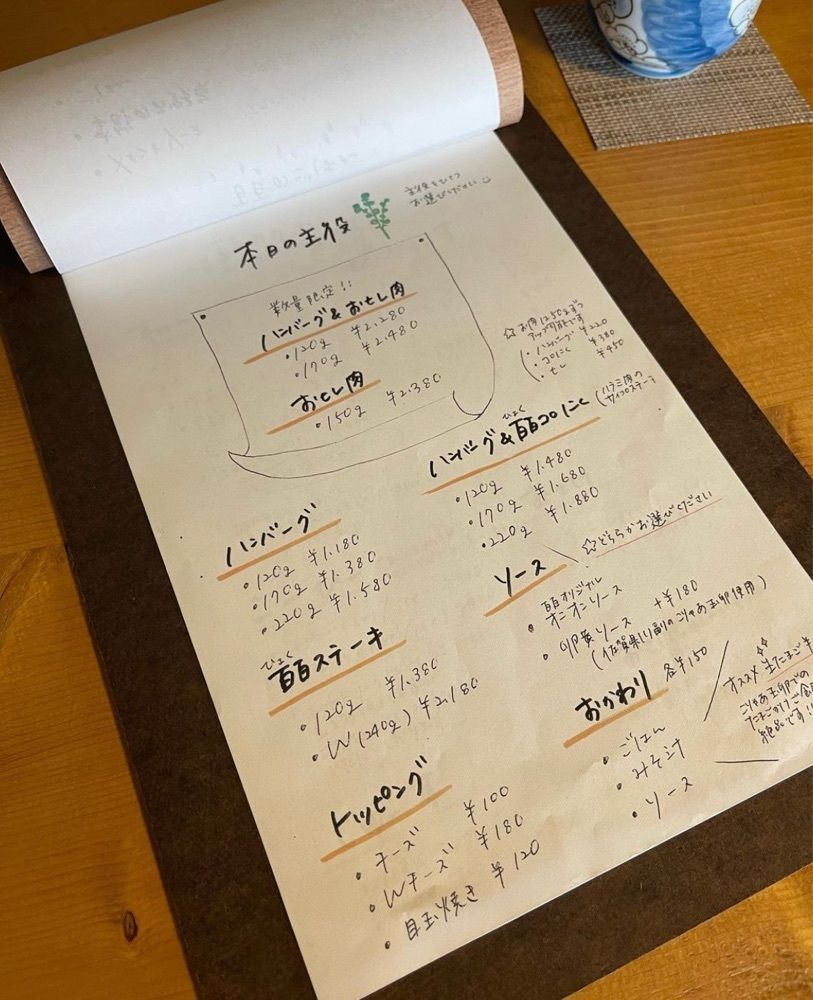 本日の主役
主役をひとつ
お選びください
数量限定!!
ハンバーグ&おせし肉
・120g ¥2.280
・170g ¥2.480
おせし肉
・150g ¥2.380
☆お肉は50gずつ
アップ可能です
・ハンバーグ ¥220
・コロにく ¥380
・せし ¥450
ハンバーグ
・120g ¥1.180
・170g ¥1.380
・220g ¥1.580
ひゃく
百百ステーキ
・120g ¥1.380
・W(240g) ¥2.180
トッピング
・チーズ ¥100
・Wチーズ ¥180
・目玉焼き ¥120
ひゃく
ハンバーグ&百百コロにく
(ハラミ肉の
サイコロステーキ)
・120g ¥1.480
・170g ¥1.680
・220g ¥1.880
ソース
☆どちらかお選びください
・百百オリジナル
オニオンソース
・卵黄ソース +¥180
(佐賀県川副のごりゃあ玉卵使用)
おかわり 各¥150
・ごはん
・みそ汁
・ソース
オススメ 生たまご ¥
ごりゃあ玉卵での
たまごかけご飯
絶品です!!